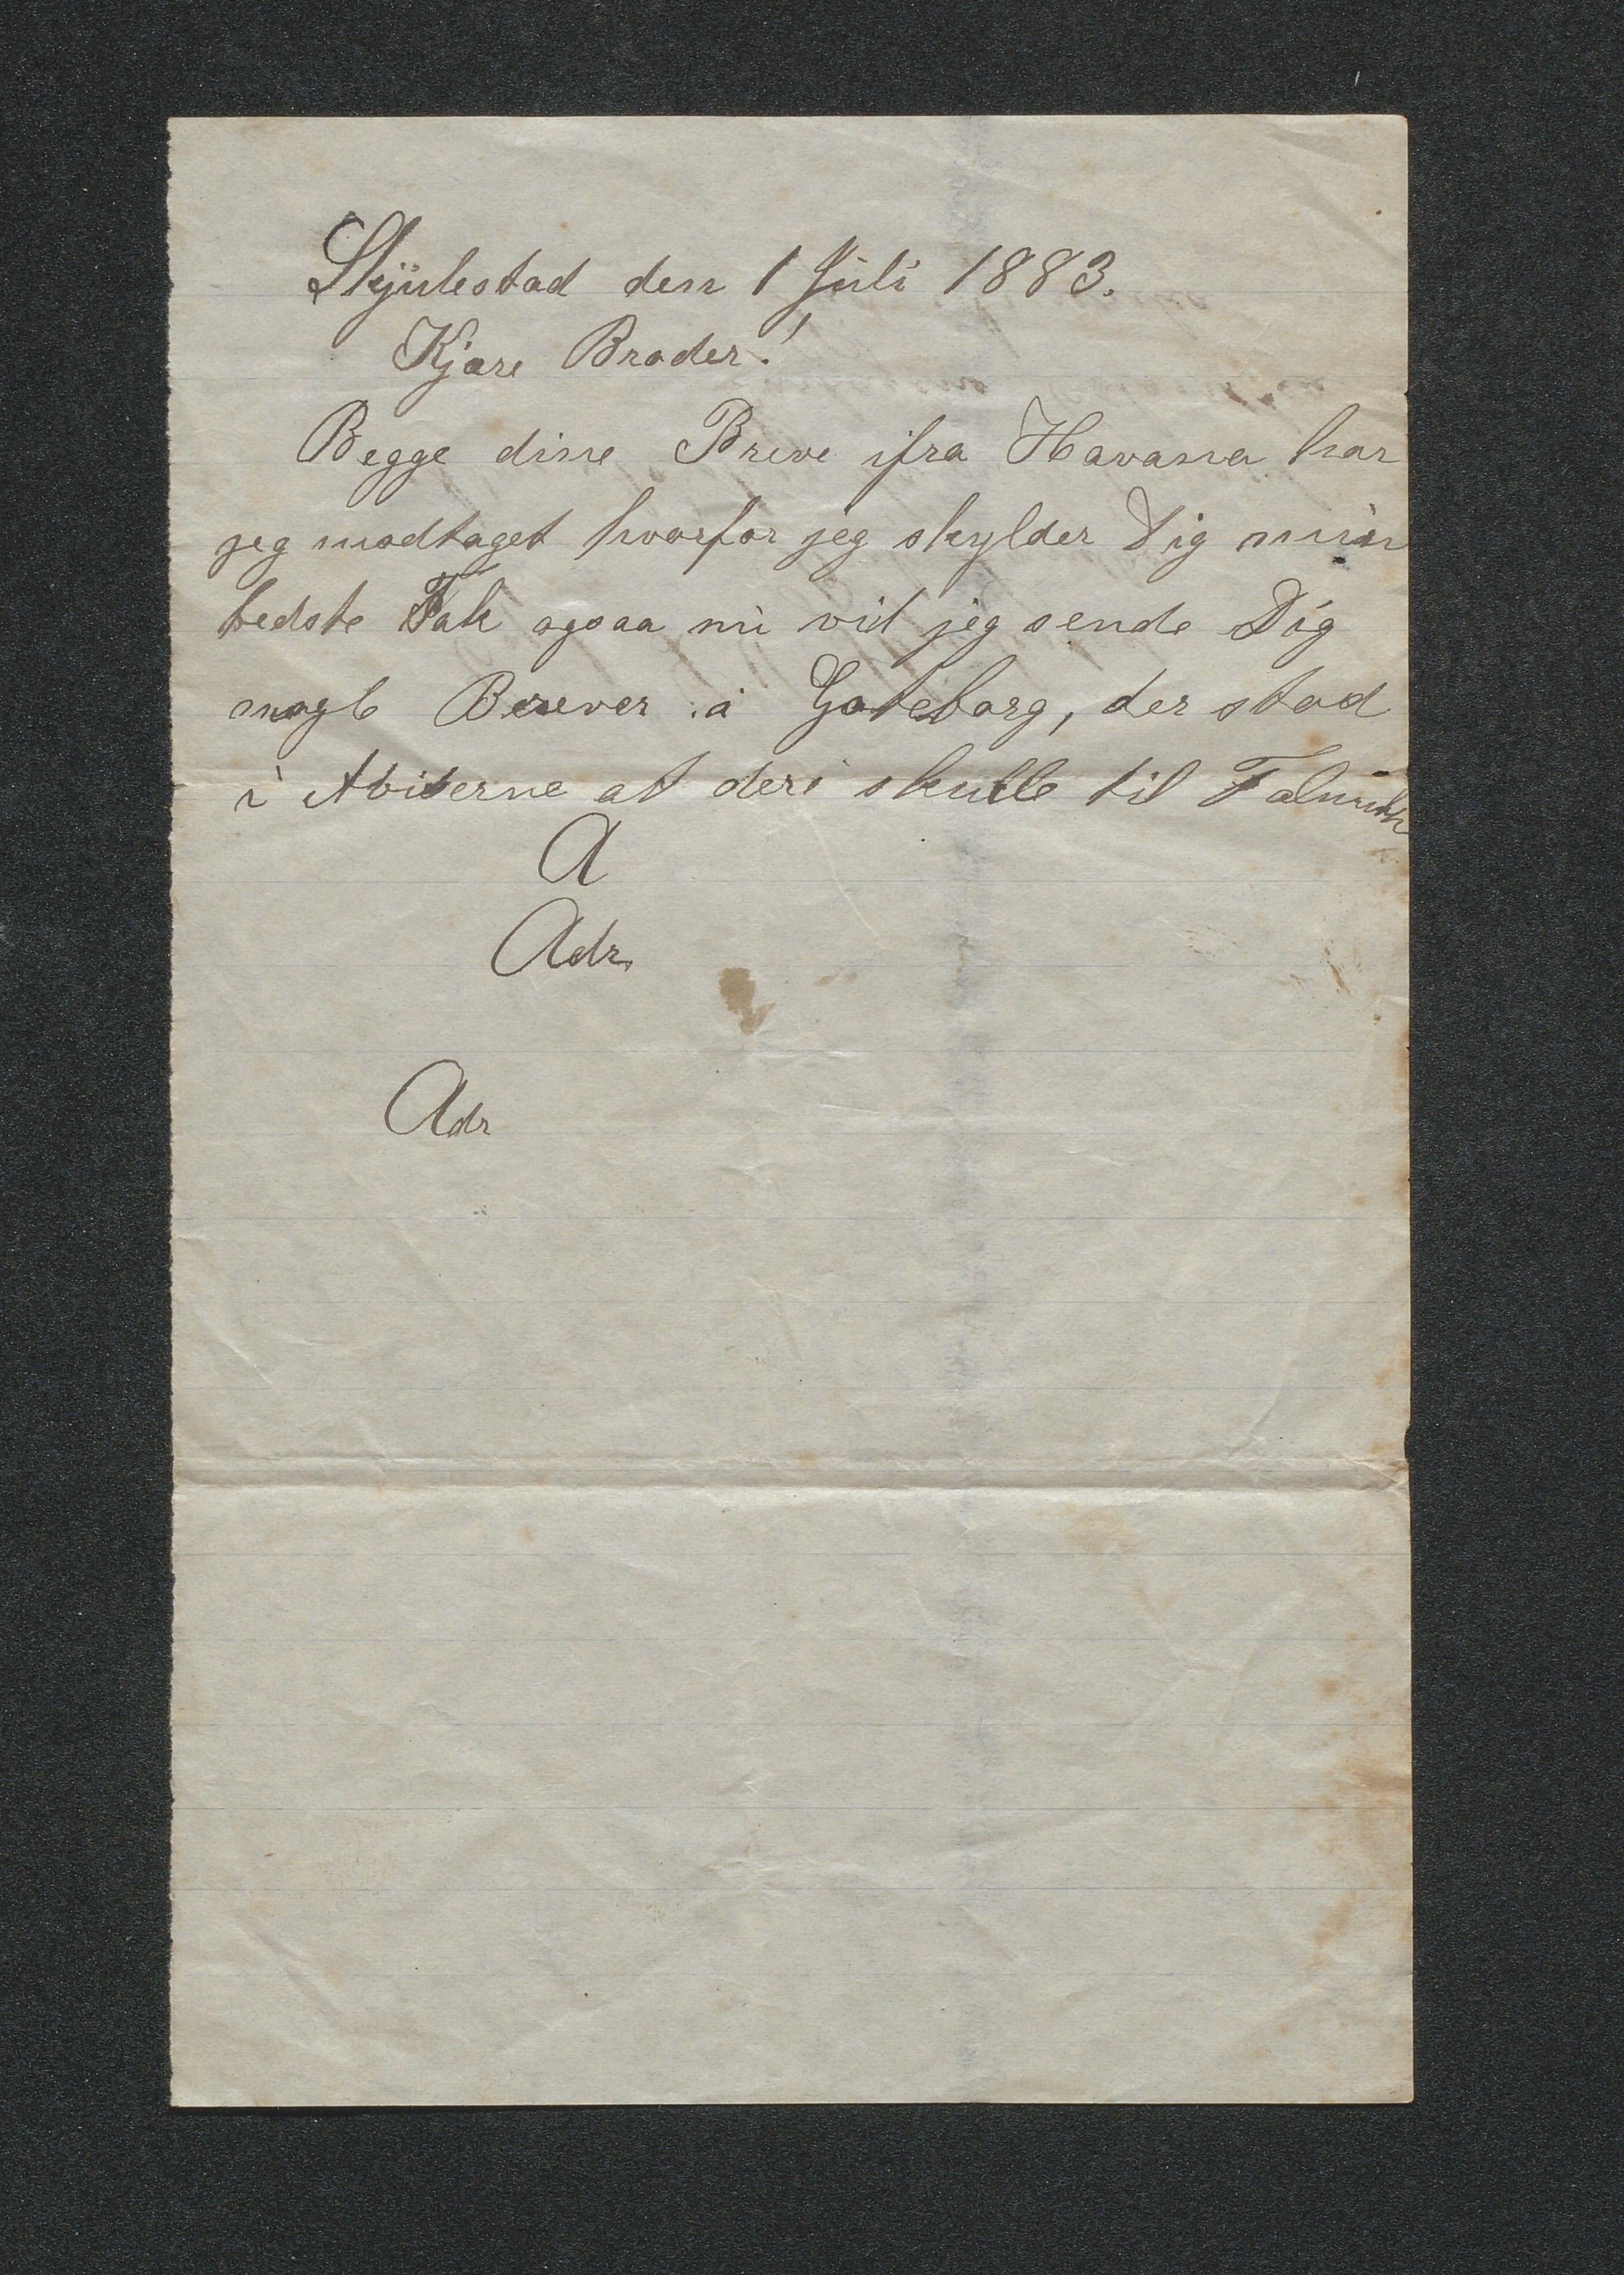 Skjulestad den 1 Juli 1883.
Kjære Broder!
Begge dine Breve ifra Havana har
jeg modtaget hvorfor jeg skylder Dig min
bedste Tak ogsaa nu vil jeg sende Dig
nogle Brever i Goteborg, der stod
i Aviserne at deri skulle til Falmuth
A
Adr
Adr